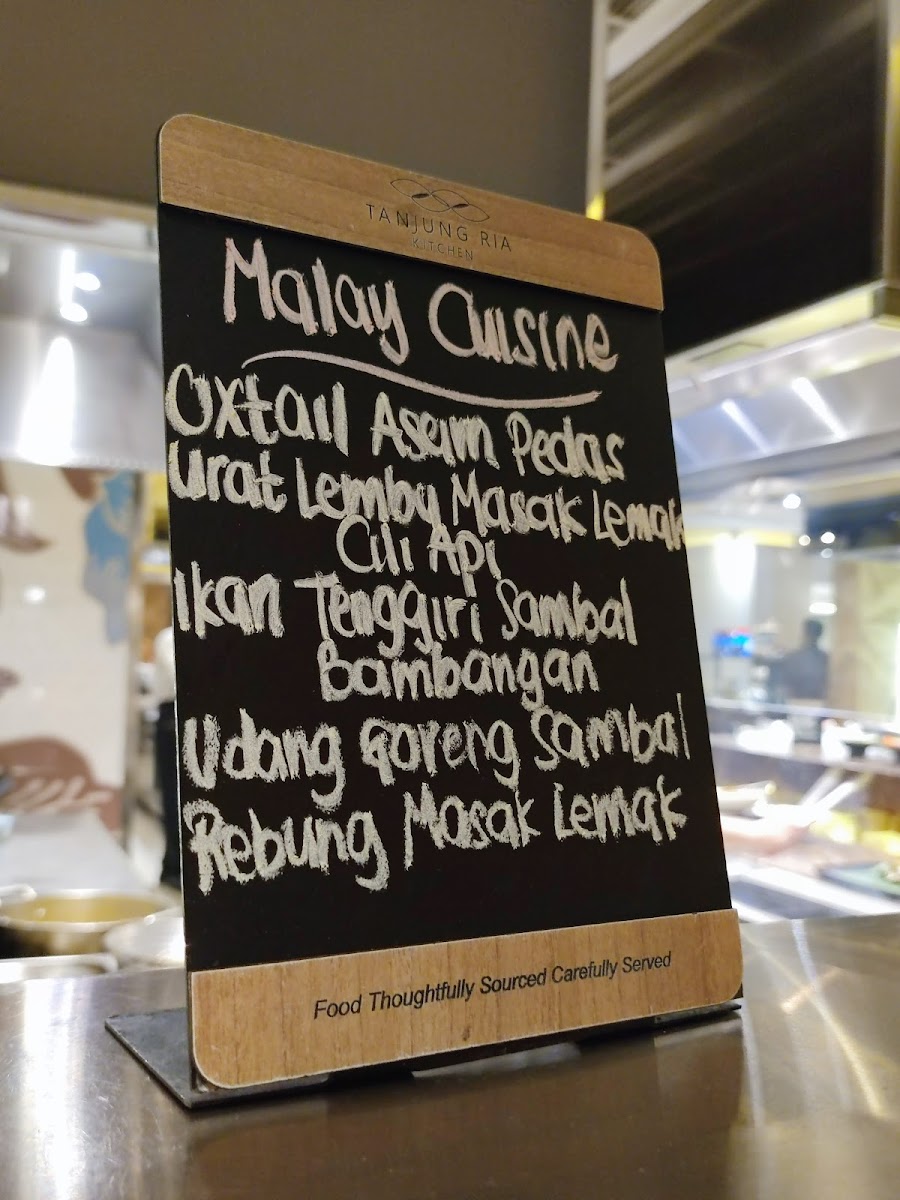 TANJUNG RIA
KITCHEN
Malay Cuisine
Oxtail Asam Pedas
Urat Lembu Masak Lemak
Cili Api
Ikan Tenggiri Sambal
Bambangan
Udang Goreng Sambal
Rebung Masak Lemak
Food Thoughtfully Sourced Carefully Served